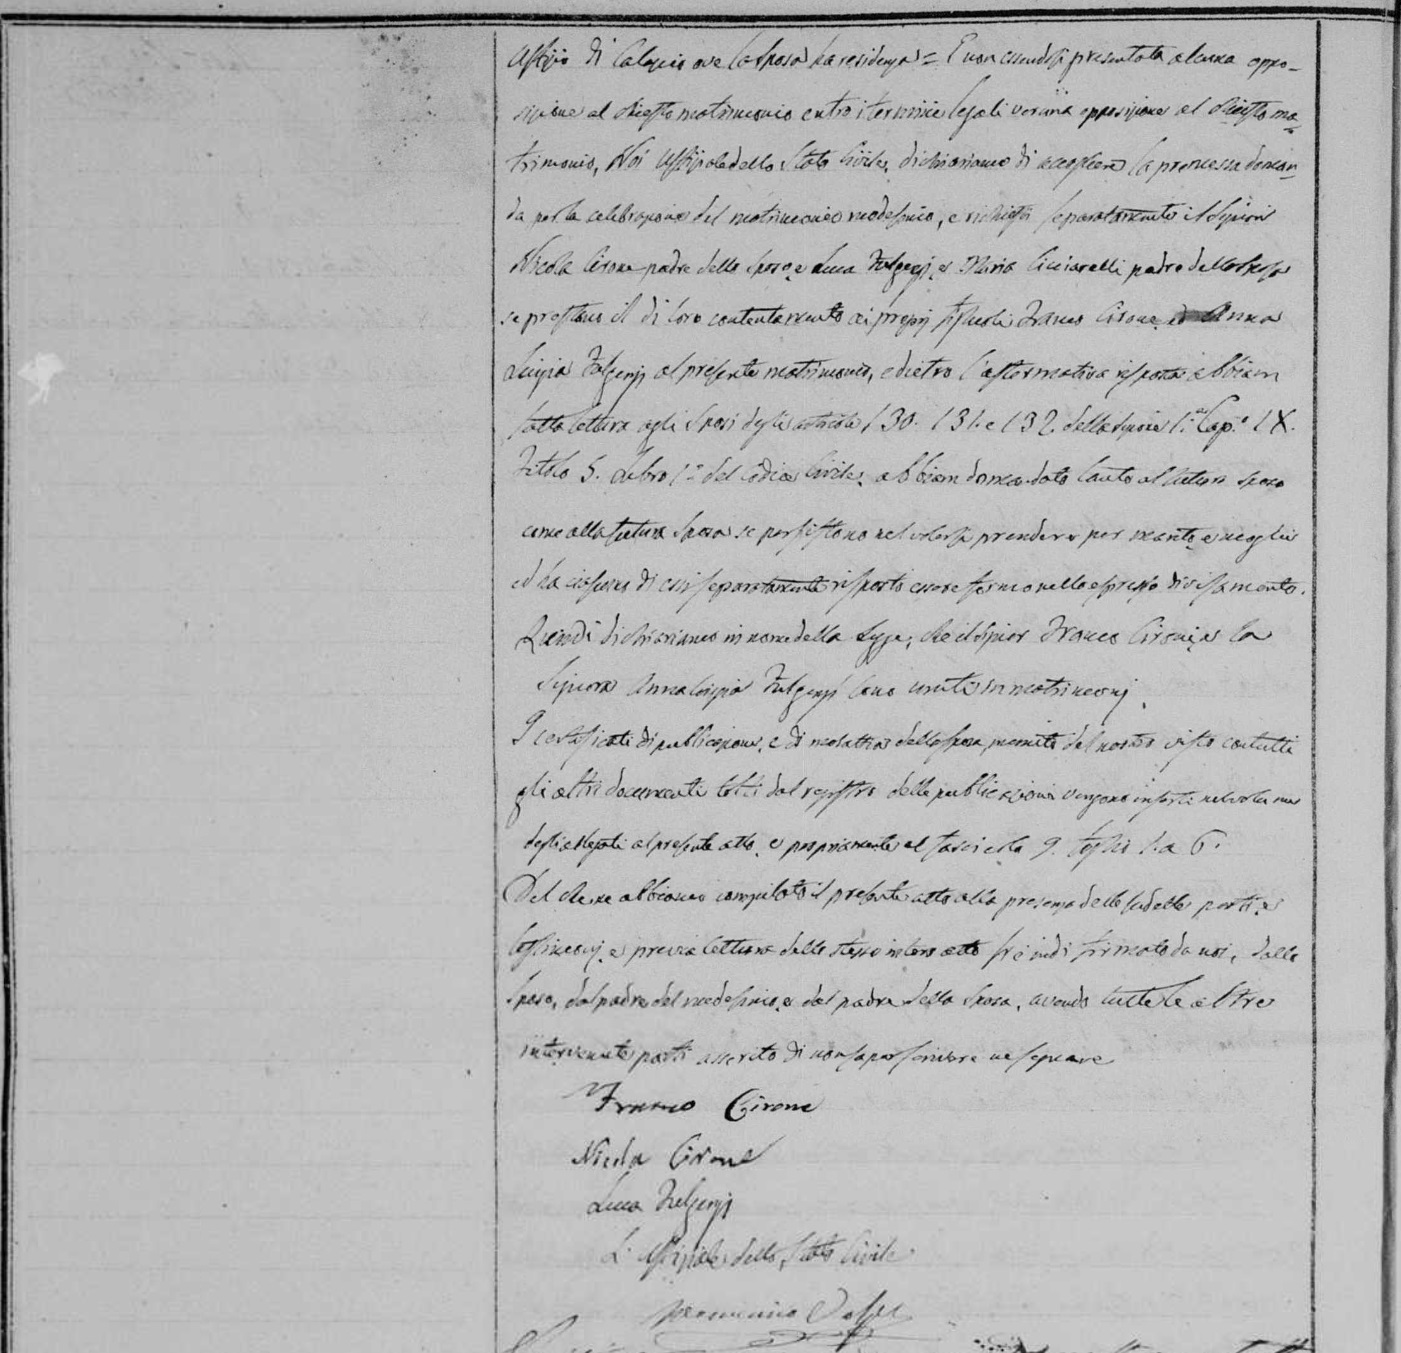 Uffizio di Calascio ove la sposa ha residenza = E non essendosi presentata alcuna oppo-
sizione al chiesto matrimonio entro i termini legali veruna opposizione al chiesto ma-
trimonio, Noi Uffiziale dello Stato Civile, dichiariamo di accogliere la promessa doman-
da per la celebrazione del matrimonio medesimo, e richiesti separatamente il Signori
Nicola Cirone padre dello sposo, e Luca Fulgenzj, e Maria Cicciarelli padre della sposa
se prestono il di loro contentamento ai proprj figliuoli Franco Cirone, ed Anna
Luigia Fulgenzj al presente matrimonio, e dietro l'affermativa risposta abbiam
fatta lettura agli sposi degli articoli 130. 131. e 132. della Sezione 1.a Cap.o IX.
Titolo 5. Libro 1.o del Codice Civile, abbiam domandato tanto al futuro sposo
come alla futura sposa se persistono nel volersi prendere per marito, e moglie
ed ha ciascuno di essi separatamente risposto essere fermo nello espresso divisamento.
Quindi dichiariamo in nome della Legge, che il Signor Franco Cirone, e la
Signora Anna Luigia Fulgenzj sono uniti in matrimonj.
I certificati di publicazione, e di della sposa, muniti del nostro visto con tutti
gli altri documenti tolti dal registro delle publicazioni vengono inserti nel volume
degli allegati al presente atto, e propriamente al fascicolo 9. foglio 1. a 6.
Del che ne abbiamo compilato il presente atto alla presenza delle sudette parti, e
testimonj, e previa lettura dello stesso intero atto si è indi firmato da noi, dallo
sposo, dal padre del medesimo, e dal padre della sposa, avendo tutte le altre
intervenute parti asserito di non saper scrivere ne segnare
Franco Cirone
Nicola Cirone
Luca Fulgenzj
L'Uffiziale dello Stato Civile